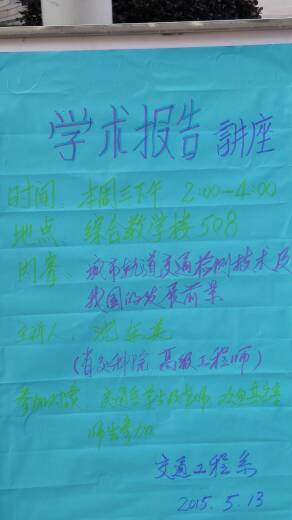 学术报告 講座
时间、本周三下午 2:00-4:00
地点、综合教学楼508
内容：城市轨道交通检测技术及
我国的发展前景
主讲人、沈
(省交科院 高级工程师)
参加对象 交通系学生及老师，欢迎其它系
师生参加
交通工程系
2015.5.13